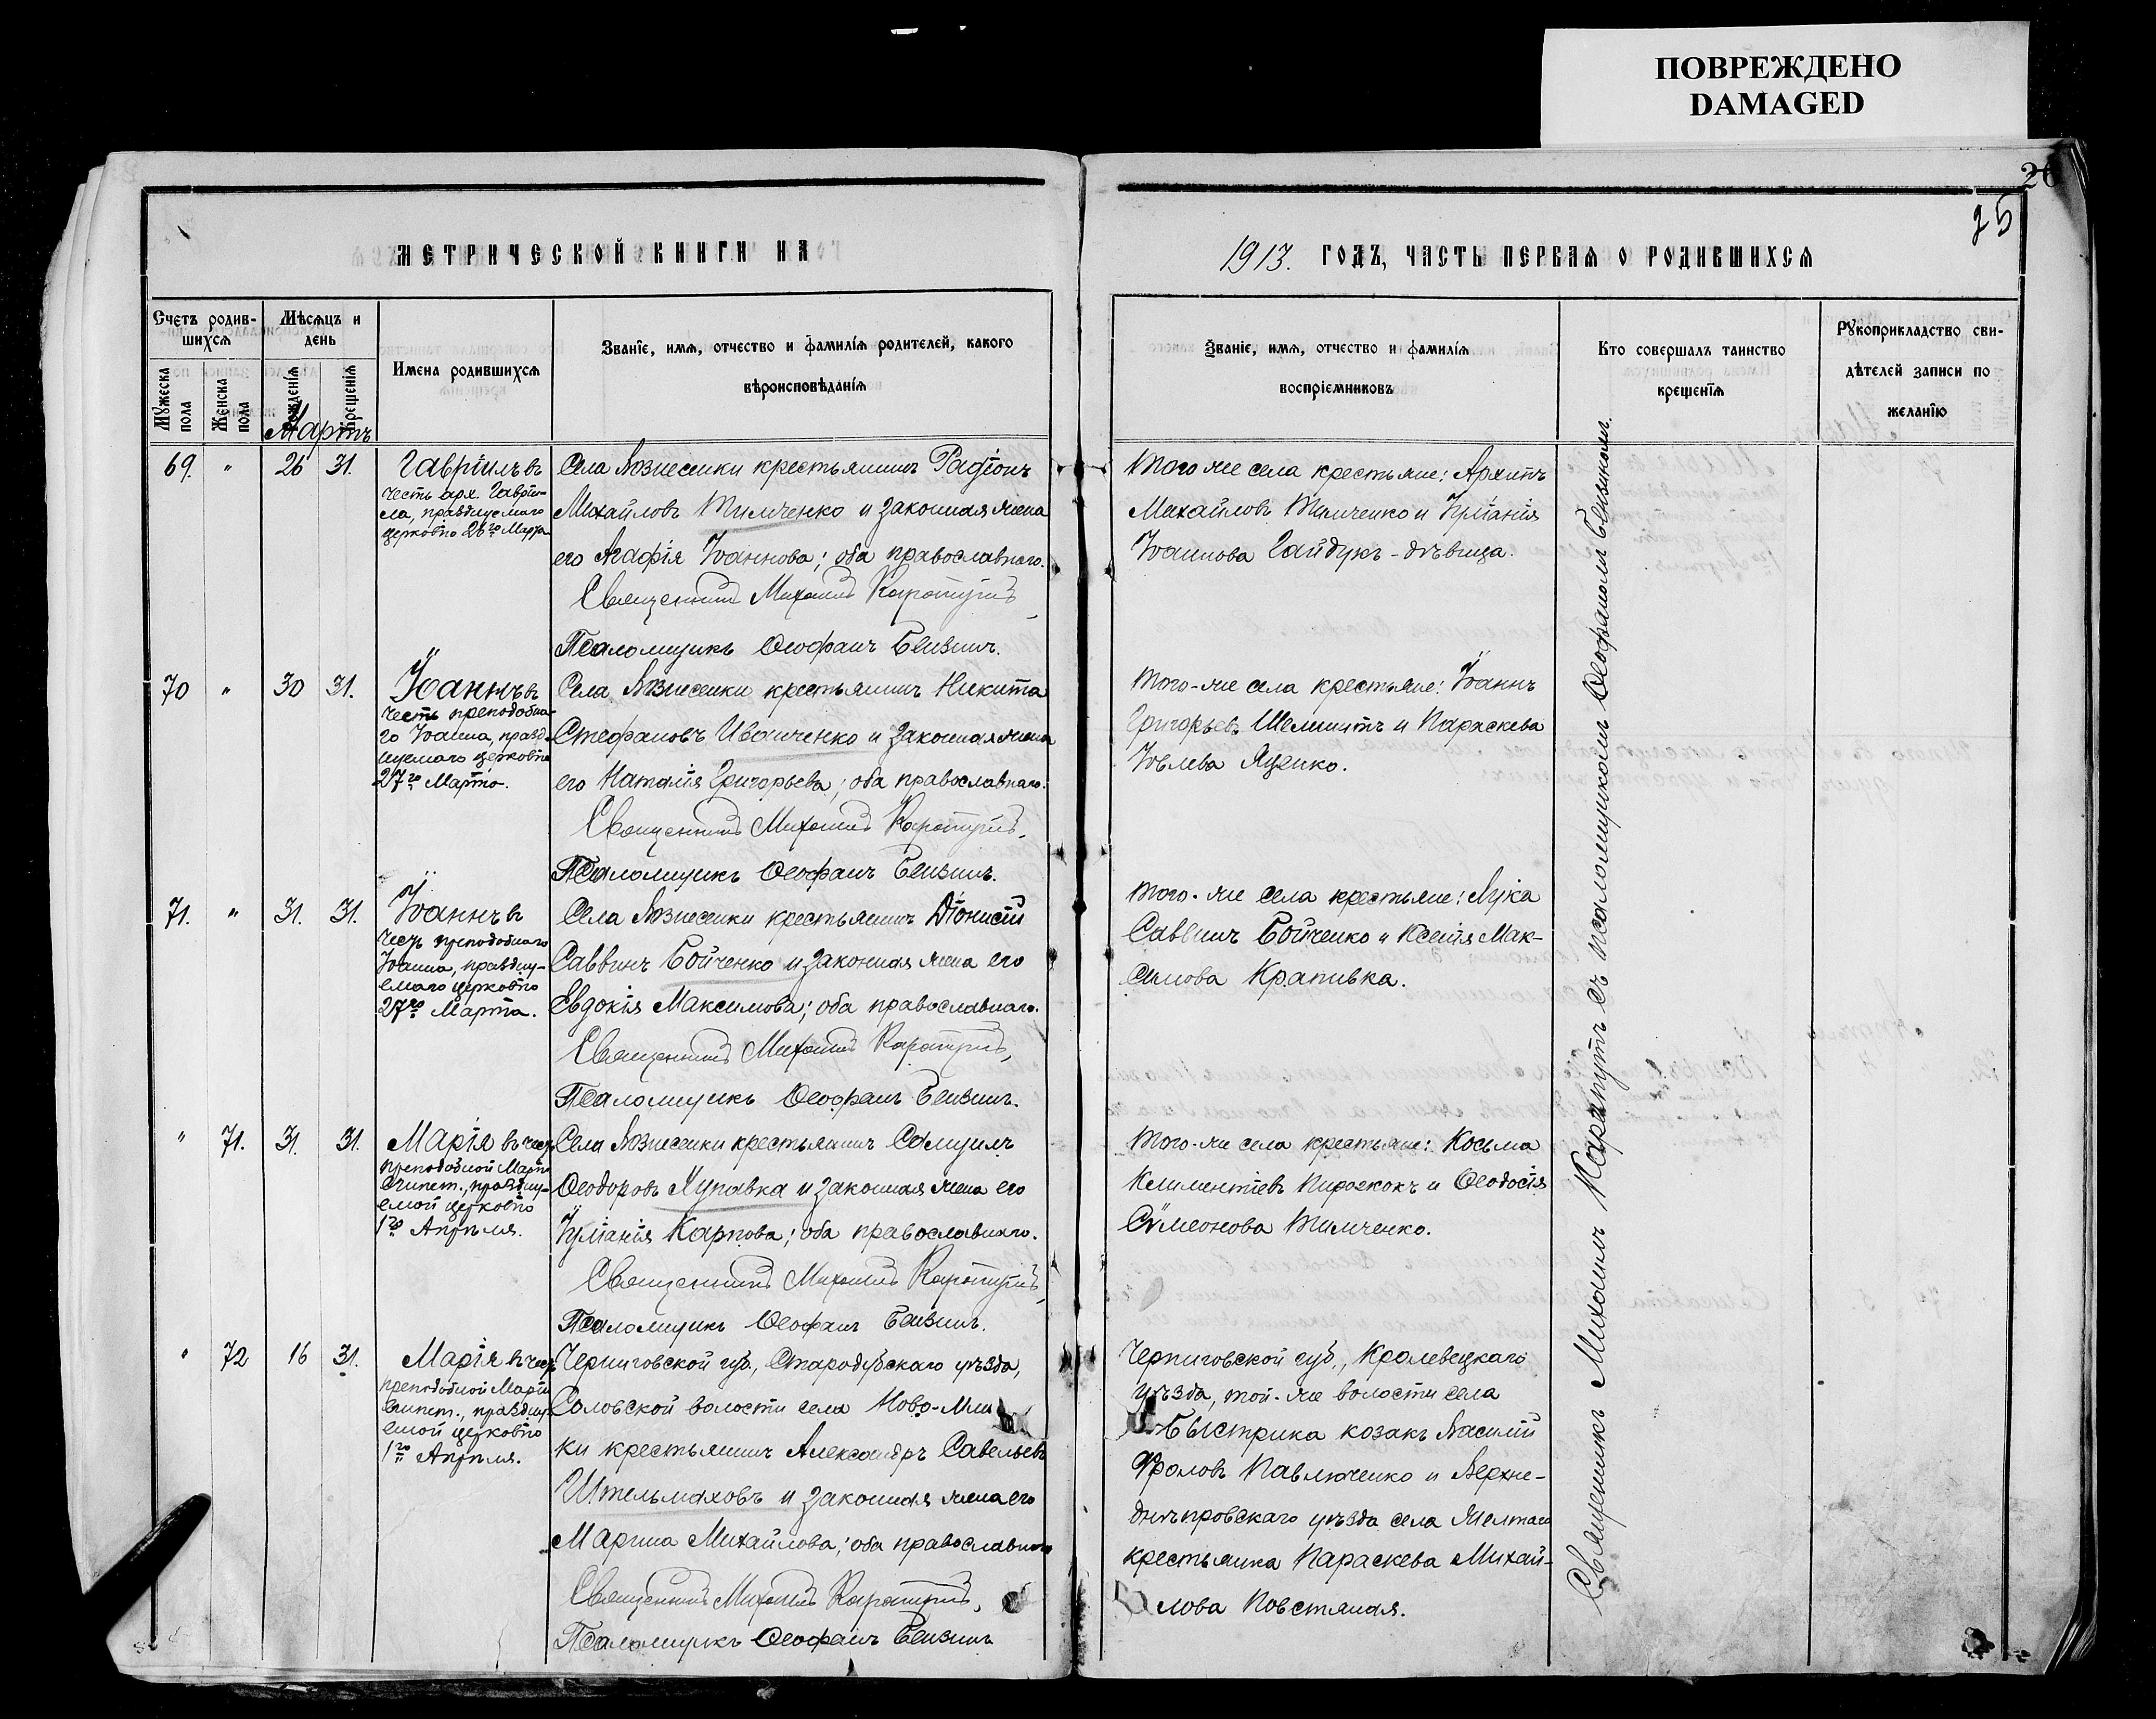 ПОВРЕЖДЕНО
DAMAGED
26
25
МЕТРИЧЕСКОЙ КНИГИ НА
1913. ГОДЪ, ЧАСТЬ ПЕРВАЯ О РОДИВШИХСЯ
Счетъ родив-
шихся
Мѣсяцъ и
день
Мужеска
пола
Женска
пола
Рожденія
Крещенія
Имена родившихся
Званіе, имя, отчество и фамилія родителей, какого
вѣроисповѣданія
Званіе, имя, отчество и фамилія
воспріемниковъ
Кто совершалъ таинство
крещенія
Рукоприкладство сви-
дѣтелей записи по
желанію
Мартъ
69. " 26 31.
Гавріилъ въ
честь арх. Гаврiи-
ла, празднуемаго
церковію 26го Марта
Села Вознесенки крестьянинъ Радіонъ
Михайловъ Тимченко и законная жена
его Агафія Іоаннова; оба православнаго.
Священникъ Михаилъ
Псаломщикъ Ѳеофанъ
Того же села крестьяне: Архипъ
Михайловъ Тимченко и Іуліанія
Іоаннова Гайдукъ - дѣвица.
70 " 30 31.
Іоаннъ въ
честь преподобна-
го Іоанна, празд-
нуемаго церковію
27го Марта.
Села Вознесенки крестьянинъ Никита
Стефановъ Иванченко и законная жена
его Наталія Григорьева; оба православнаго.
Священникъ Михаилъ
Псаломщикъ Ѳеофанъ
Того-же села крестьяне: Іоаннъ
Григорьевъ и Параскева
Іовлева Яценко.
71. " 31. 31.
Іоаннъ въ
честь преподобнаго
Іоанна, праздну-
емаго церковію
27го Марта.
Села Вознесенки крестьянинъ Діонисій
Саввинъ Бойченко и законная жена его
Евдокія Максимова; оба православнаго.
Священникъ Михаилъ
Псаломщикъ Ѳеофанъ
Того-же села крестьяне: Лука
Саввинъ Бойченко и Ксенія Мак-
симова Крапивка.
" 71. 31. 31.
Марія въ честь
преподобной Маріи
Египет., праздну-
емой церковію
1го Апрѣля.
Села Вознесенки крестьянинъ Самуилъ
Ѳеодоровъ Лупавка и законная жена его
Іуліанія Карпова; оба православнаго.
Священникъ Михаилъ
Псаломщикъ Ѳеофанъ
Того-же села крестьяне: Косьма
Климентіевъ Пирожокъ и Ѳеодосія
Сѵмеонова Тимченко.
" 72 16 31.
Марія въ честь
преподобной Маріи
Египет., праздну-
емой церковію
1го Апрѣля.
Черниговской губ., Стародубскаго уѣзда,
Соловской волости села Ново-Млин
ки крестьянинъ Александръ Савельевъ
Штельмаховъ и законная жена его
Марина Михайлова; оба православнаго
Священникъ Михаилъ
Псаломщикъ Ѳеофанъ
Черниговской губ., Кролевецкаго
уѣзда, той-же волости села
Быстрика козакъ Василій
Фроловъ Павлюченко и Верхне-
днѣпровскаго уѣзда села Желтаго
крестьянка Параскева Михай-
лова Повстяная.
Священникъ Михаилъ съ псаломщикомъ Ѳеофаномъ